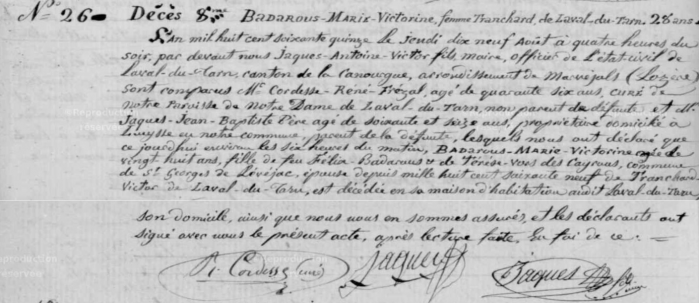 N° 26 Décès 8me Badarous-Marie-Victorine, femme Tranchard, de Laval-du-Tarn. 28 ans
L'An mil huit cent soixante quinze le Jeudi dix neuf Août à quatre heures du
soir, par devant nous Jaques-Antoine-Victor fils, maire, officier de l'état civil de
Laval-du-Tarn, canton de la Canourgue, arrondissement de Marvejols (Lozère)
sont comparus Mr Cordesse-Réné-Frézal, agé de quarante six ans, curé de
Notre Paroisse de Notre Dame de Laval-du-Tarn, non parent de défunte, et Mr
Jaques-Jean-Baptiste Père agé de soixante et seize ans, propriétaire domicilié à
en notre commune, parent de la défunte, lesquels nous ont déclaré que
ce jourd'hui environ les six heures du matin, Badarous-Marie-Victorine agée de
vingt huit ans, fille de feu Félix Badarous & de Térèse des Cayrous, commune
de St Georges de Lévéjac, épouse depuis mille huit cent soixante neuf de Tranchard
Victor de Laval-du-Tarn, est décédée en sa maison d'habitation audit Laval-du-Tarn,
son domicile, ainsi que nous nous en sommes assurés, et les déclarants ont
signé avec nous le présent acte, après lecture faite. En foi de ce :
R. Cordesse (curé) Jaques Jaques